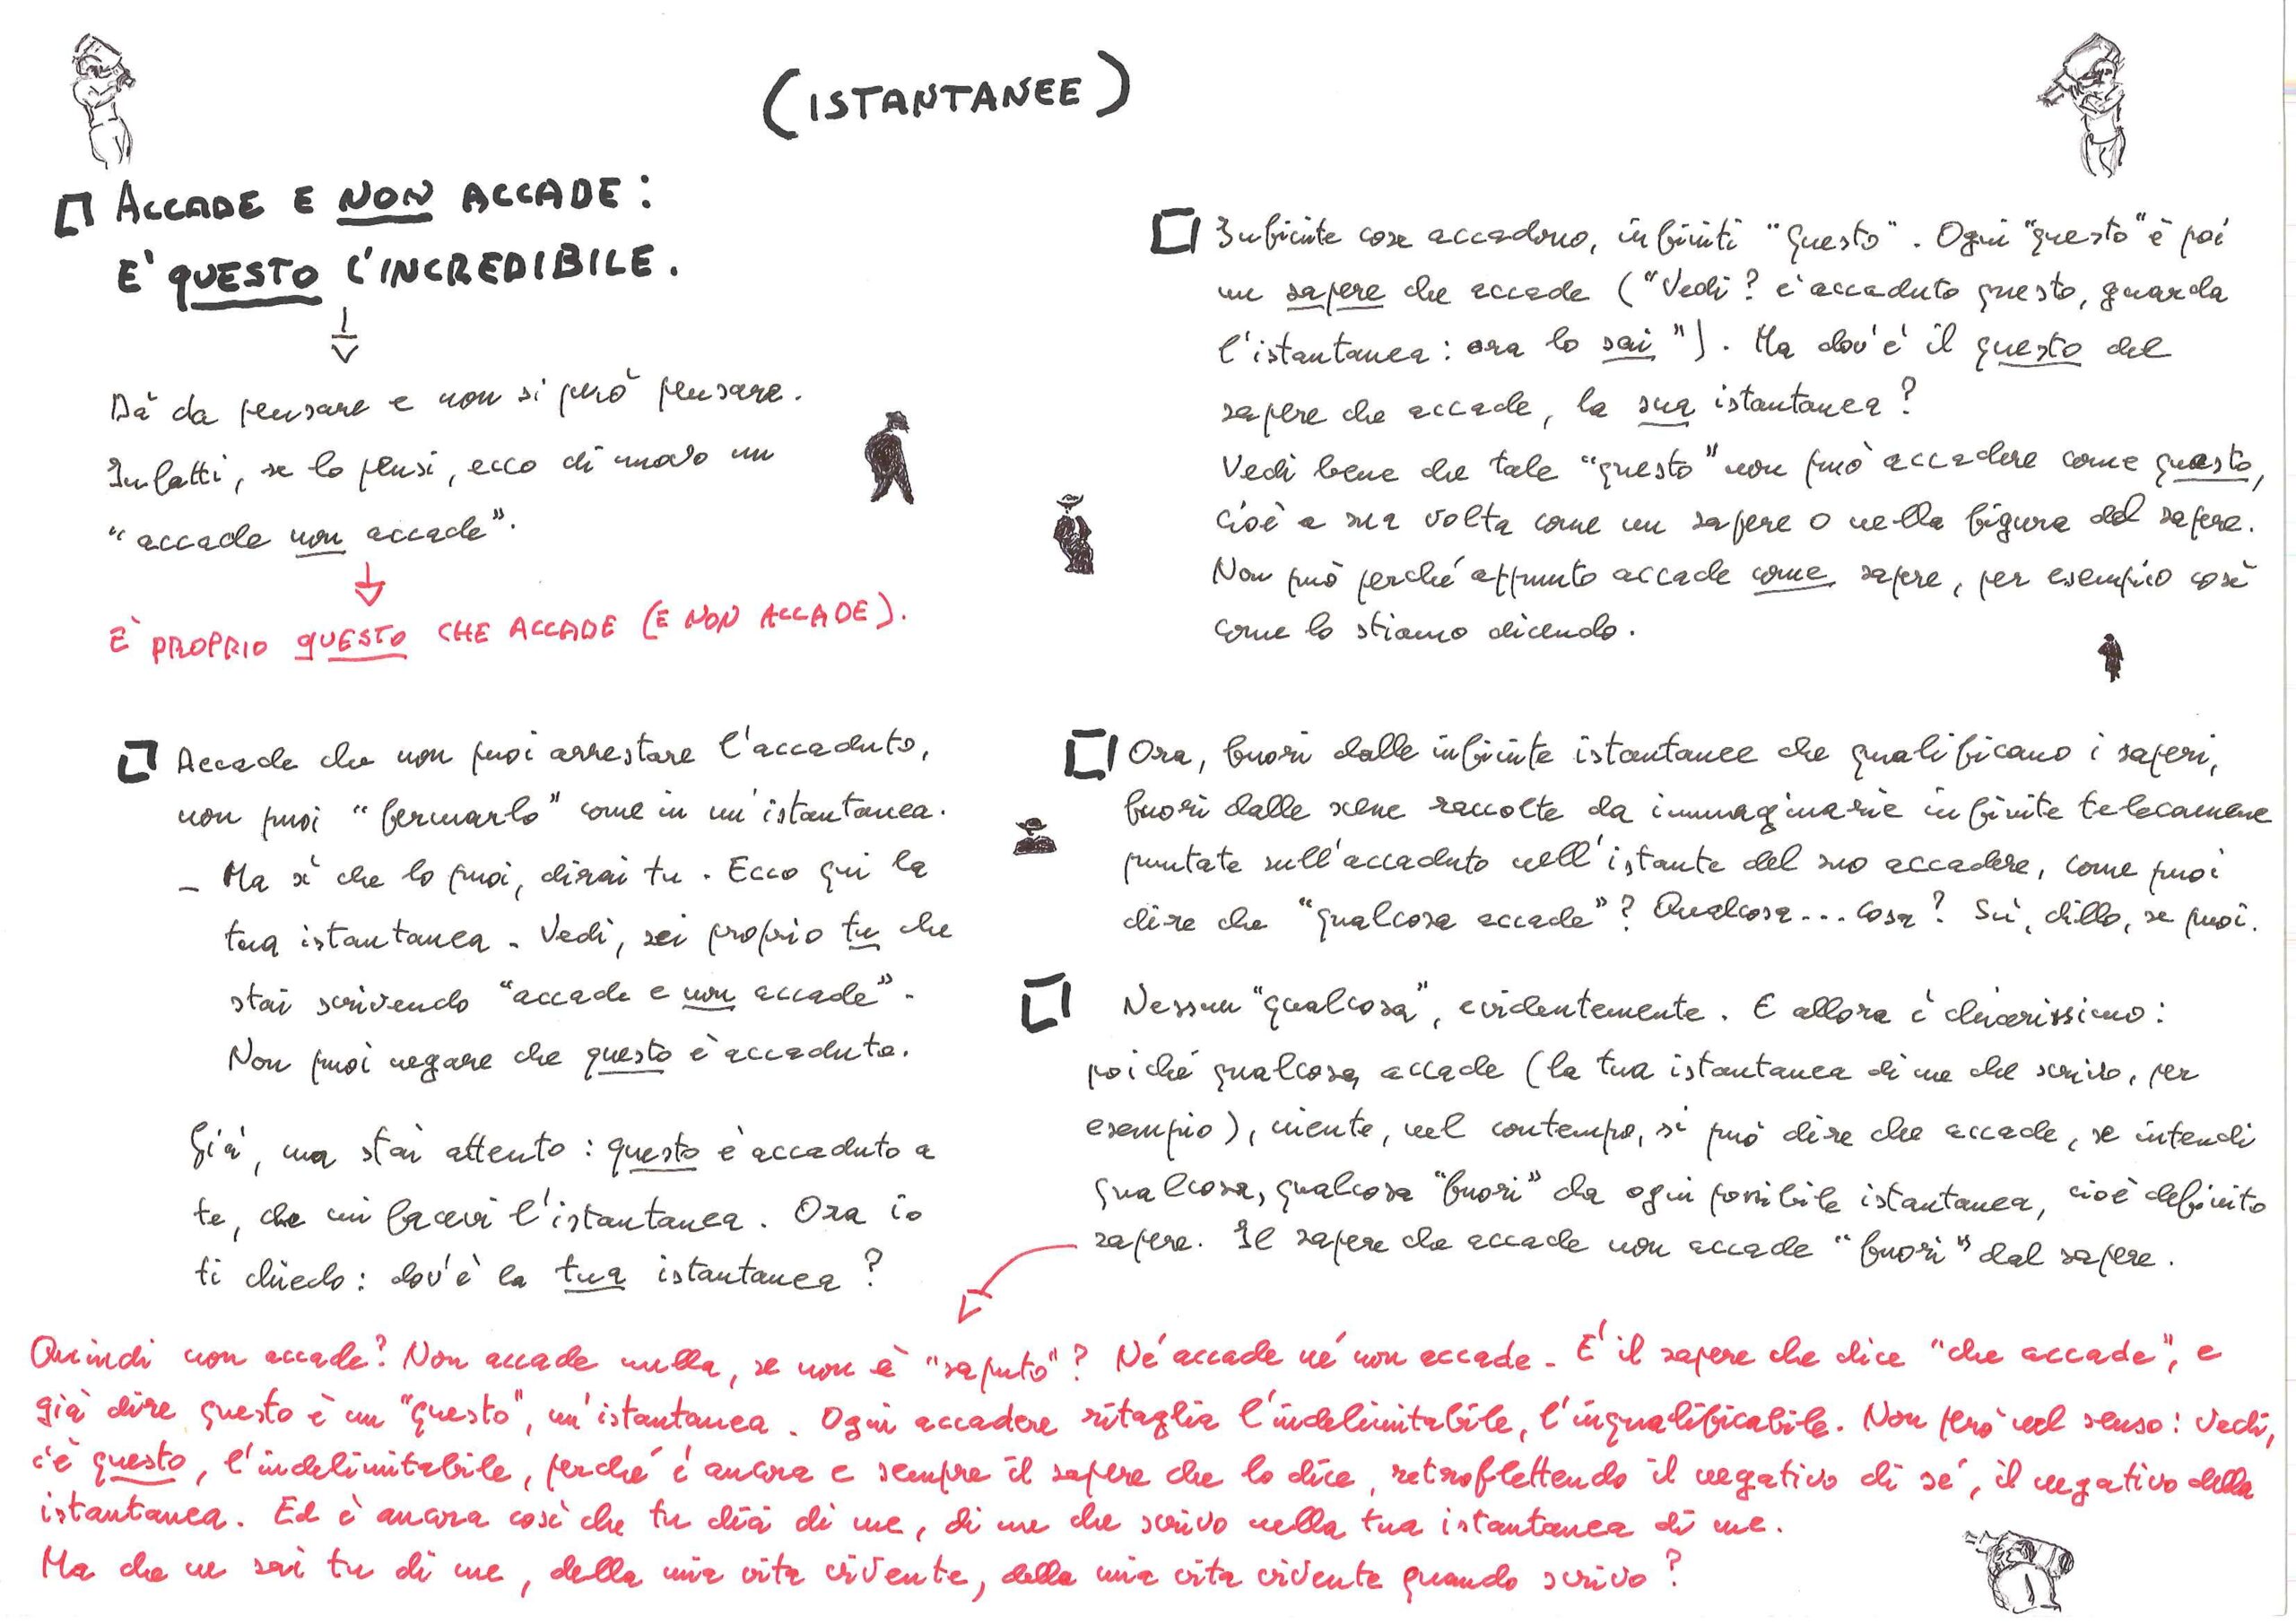 (ISTANTANEE)
ACCADE E NON ACCADE:
E' QUESTO L'INCREDIBILE.
Dà da pensare e non si può pensare.
Infatti, se lo pensi, ecco di nuovo un
"accade non accade".
È PROPRIO QUESTO CHE ACCADE (E NON ACCADE).
Accade che non puoi arrestare l'accaduto,
non puoi "fermarlo" come in un'istantanea.
- Ma sì che lo puoi, dirai tu. Ecco qui la
tua istantanea. Vedi, sei proprio tu che
stai scrivendo "accade e non accade".
Non puoi negare che questo è accaduto.
Già, ma stai attento: questo è accaduto a
te, che mi facevi l'istantanea. Ora io
ti chiedo: dov'è la tua istantanea?
Infinite cose accadono, infiniti "questo". Ogni "questo" è poi
un sapere che accade ("Vedi? è accaduto questo, guarda
l'istantanea: ora lo sai"). Ma dov'è il questo del
sapere che accade, la sua istantanea?
Vedi bene che tale "questo" non può accadere come questo,
cioè a sua volta come un sapere o nella figura del sapere.
Non può perché appunto accade come sapere, per esempio così
come lo stiamo dicendo.
Ora, fuori dalle infinite istantanee che qualificano i saperi,
fuori dalle scene raccolte da immaginarie infinite telecamere
puntate sull'accaduto nell'istante del suo accadere, come puoi
dire che "qualcosa accade"? Qualcosa... cosa? Sù, dillo, se puoi.
Nessun "qualcosa", evidentemente. E allora è chiarissimo:
poiché qualcosa accade (la tua istantanea di me che scrivo, per
esempio), niente, nel contempo, si può dire che accade, se intendi
qualcosa, qualcosa "fuori" da ogni possibile istantanea, cioè definito
sapere. Il sapere che accade non accade "fuori" dal sapere.
Quindi non accade? Non accade nulla, se non è "saputo"? Né accade né non accade. E' il sapere che dice "che accade", e
già dire questo è un "questo", un'istantanea. Ogni accadere ritaglia l'indelimitabile, l'inqualificabile. Non però nel senso: vedi,
c'è questo, l'indelimitabile, perché è ancora e sempre il sapere che lo dice, retroflettendo il negativo di sé, il negativo della
istantanea. Ed è ancora così che tu dici di me, di me che scrivo nella tua istantanea di me.
Ma che ne sai tu di me, della mia vita vivente, della mia vita vivente quando scrivo?